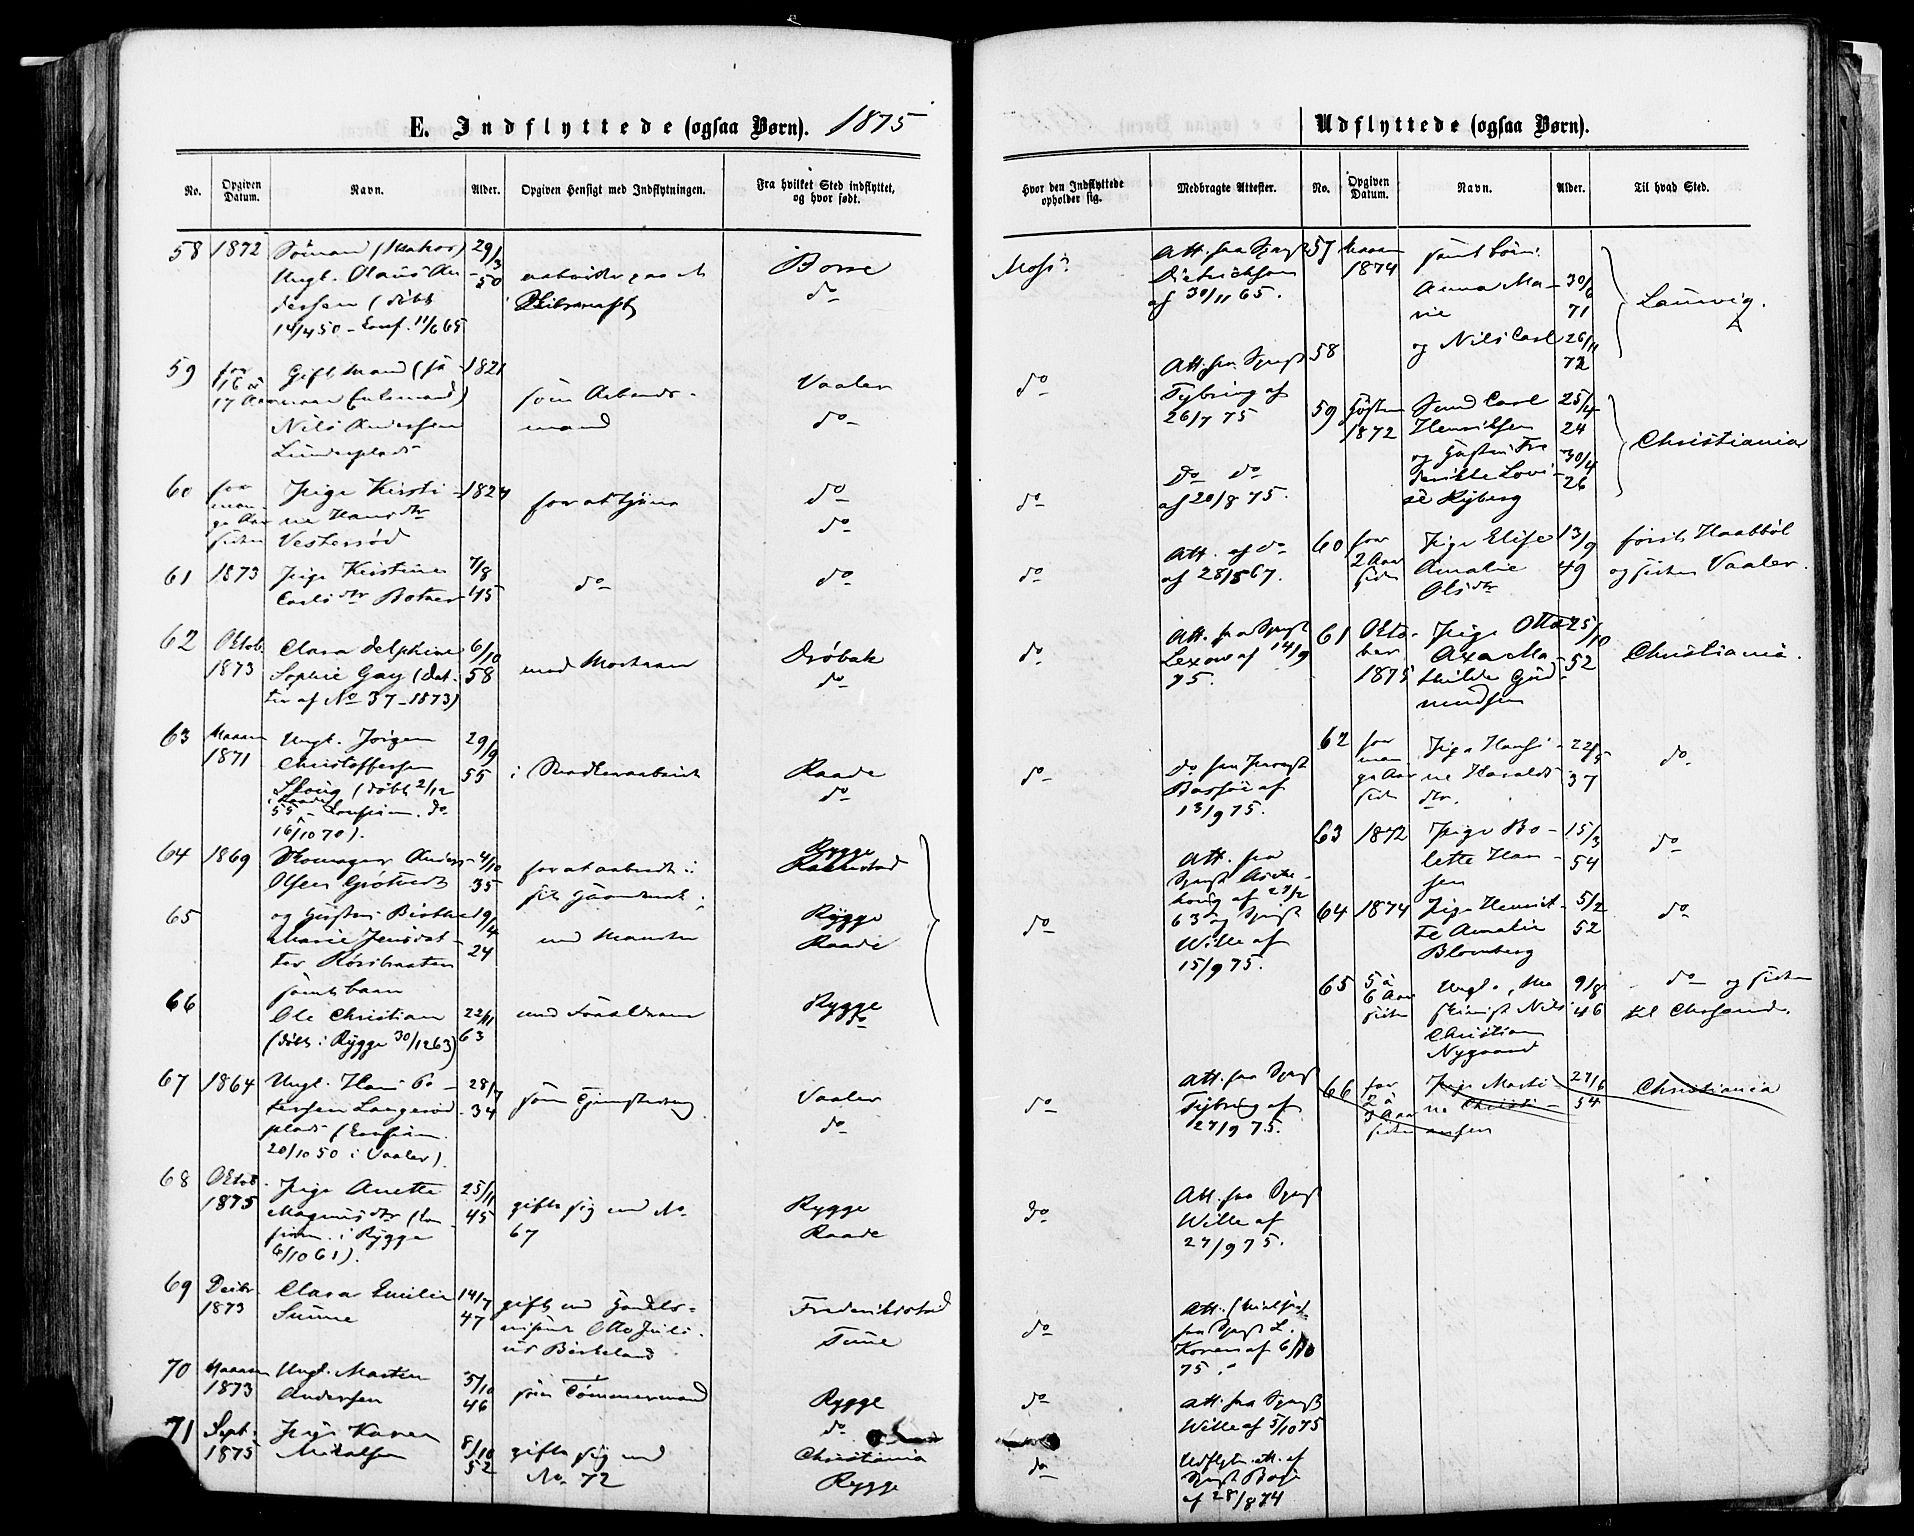 E. Indflyttede (ogsaa Børn). 1875
No.
Opgiven Datum.
Navn.
Alder.
Opgiven Hensigt med Indflytningen.
Fra hvilket Sted indflyttet, og hvor født.
58 1872
Ungl. Olaus An-
dersen (døbt
14/4 50 - Conf. 11/6 65
29/3
50
Borre
do
59 for
16 à
17 Aar
Gift Mand (
Nils Andersen
1821
som Arbeids-
mand
Vaaler
do
60 for
man-
ge Aar
siden
Pige Kirsti-
ne Hansdtr
Vestersød
1824
for at tjene
do
do
61 1873
Pige Kirstine
Carlsdtr Botner
7/8
45
do
do
62 Oktob.
1873
Clara Delphine
Sophie Gay (dat-
ter af No 37-1873)
6/10
58
med Moderen
Drøbak
do
63
1871
Ungl. Jørgen
Christoffersen
Skoug (døbt 2/12
55 i Raade - Confirm. do
16/10 70).
29/9
55
Raade
do
64 1869
Skomager Anders
Olsen Grøtvedt
4/10
35
for at arbeide i
sit Haandverk
Rygge
65
og Hustru Birthe
Marie Jensdat-
ter
19/4
24
med Manden
Rygge
Raade
66
samt barn
Ole Christian
(døbt i Rygge 30/12 63)
22/11
63
med Forældrene
Rygge
do
67 1864
Ungl. Hans Pe-
tersen Langerød-
plads (Confirm.
20/10 50 i Vaaler).
28/7
34
som Tjenestedreng
Vaaler
do
68 Oktob.
1875
Pige Anette
Magnusdtr (Con-
firm. i Rygge
6/10 61).
25/11
45
gifte sig med No
67
Rygge
Raade
69 Decbr.
1873
Clara Emilie
Sunne
14/7
47
gift med Handels-
Otto Juli-
us Birkeland
Frederikstad
Tune
70
1873
Ungl. Martin
Andersen
5/10
46
som Tømmermand
Rygge
do
71 Sept.
1875
Pige Karen
8/10
52
gifte sig med
No. 72
Christiania
Rygge
Udflyttede (ogsaa Børn).
Hvor den Indflyttede opholder sig.
Medbragte Attester.
No.
Opgiven Datum.
Navn.
Alder.
Til hvad Sted.
Moss
Att. fra Spgst
Dietrichson
af 30/11 65.
do
Att. fra Spgst
Tybring af
26/7 75
do
Do do
af 20/8 75.
do
Att. af do
af 28/5 67.
do
Att. fra Spgst
Lexow af 14/9
75.
do
Do fra
Bassøe af
13/9 75.
do
Att. fra
Spgst
af 27/2
63 og Spgst
Wille af
15/9 75.
do
Att. fra Spgst
Tybring af
27/9 75.
do
Att. fra Spgst
Wille af
27/9 75.
do
Att.
fra Spgst L.
Koren af 6/10
75.
do
Att. fra Spgst
Wille af 5/10 75
do
Udflytn. att. af
Spgst
af 28/8 74
57
1874
samt børn:
Anna Ma-
rie
30/6
71
Laurvig.
58
og Nils Carl
26/11
72
59 Høsten
1872
Svend Carl
Henriksen
og Hustru Fre-
derikke Lovi-
se Ryberg
25/4
24
30/4
26
Christiania
60 for
2 Aar
siden
Pige Elise
Amalie
Olsdtr
13/9
49
først Haabøl
og siden Vaaler.
61 Okto-
ber
1875
Pige Otto-
Axa Ma-
thilde Gud-
mundsen
25/10
52
Christiania.
62 for
man-
ge Aar
siden
Pige Hansi-
ne Haralds-
dtr.
22/5
37
do
63 1872
Pige Bo-
lette Han-
sen
15/3
54
do
64 1874
Pige Henriet-
te Amalie
Blomberg
5/2
52
do
65 5 à
6 Aar
siden
Ungl. Ma-
skinist Nils
Christian
Nygaard
9/8
46
do og siden
til Chrsand.
66 for
2 à
3 Aar
siden
Pige Marti-
ne Christi-
ansen
27/6
54
Christiania